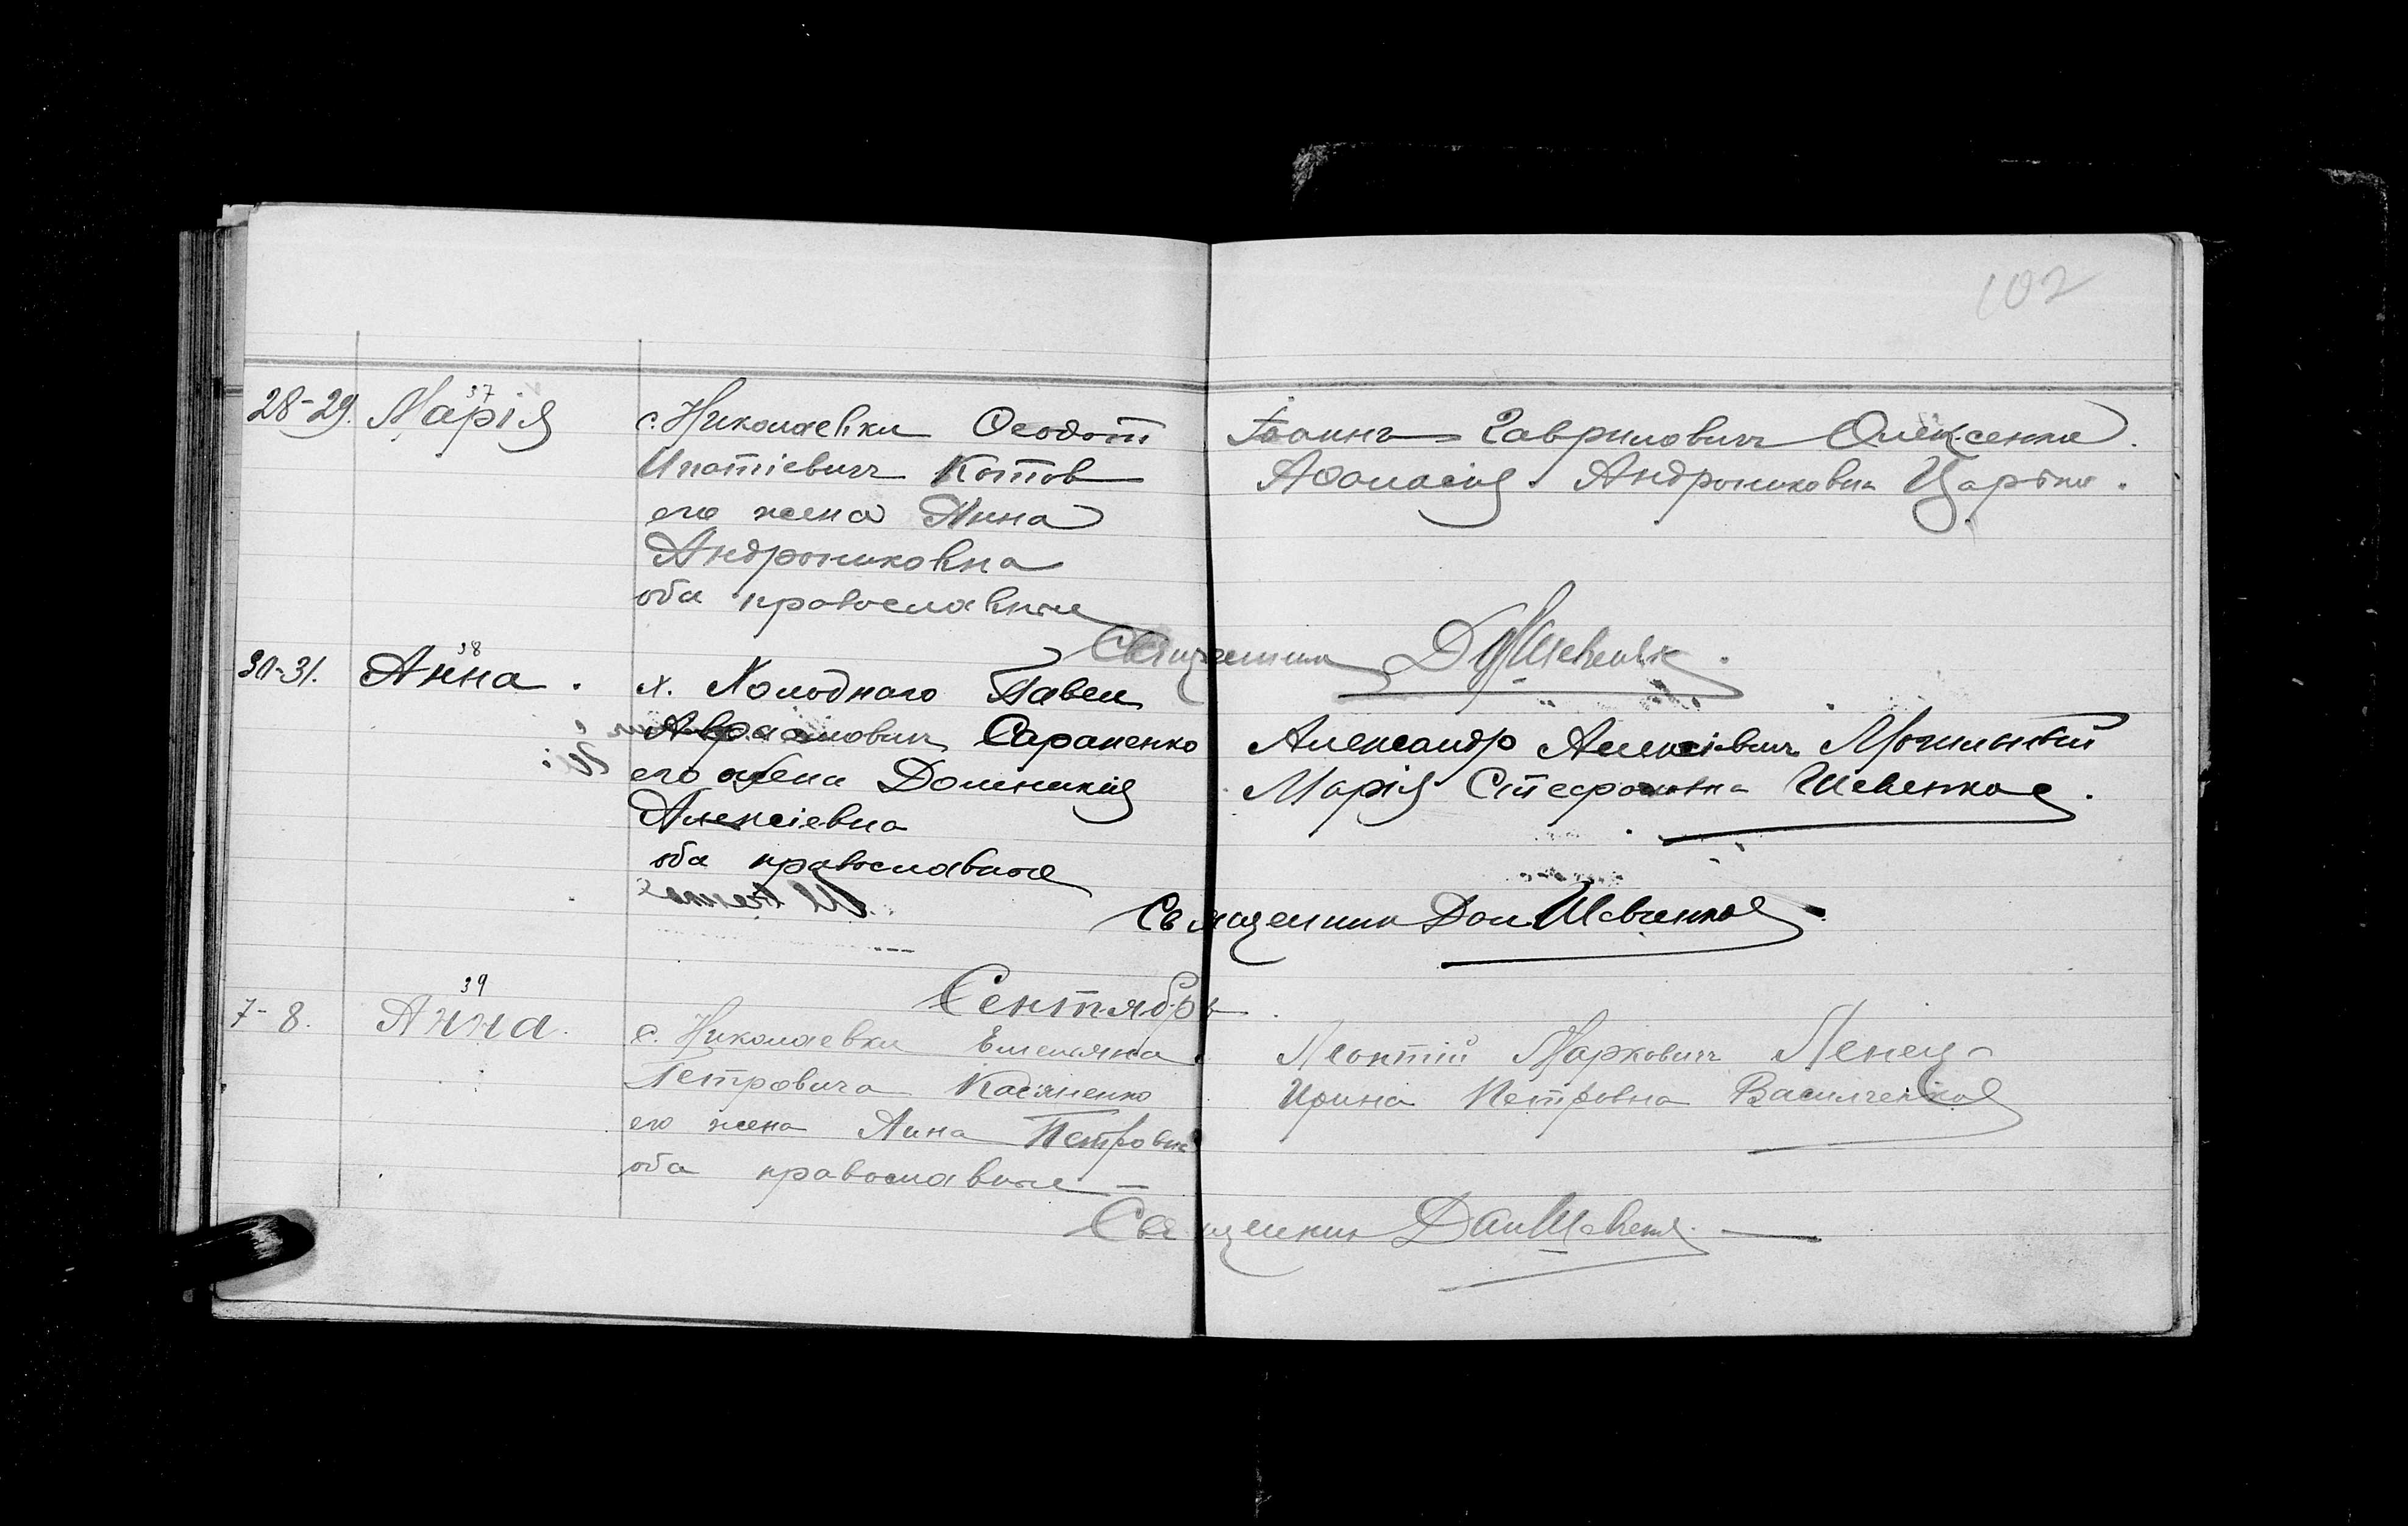 102
37
28-29. Марія
с. Николаевки Ѳеодот
Ипатіевич Котов
его жена Анна
Андрониковна
оба православные
Іоаннъ Гаврилович Олексенко.
Аѳанасія Андрониковна Царенко.
Священник
38
30-31. Анна.
х. Холоднаго Павел
Авраамович Сараненко
его жена Домникія
Алексіевна
оба православные
Александр Алексіевич Могильный
Марія Стефановна Шевченкова.
Священник Дан Шевченко
Сентябрь
39
7-8. Анна.
с. Николаевки Емельяна
Петровича Касяненко
его жена Анна Петровна
оба православные
Леонтій Маркович Ленец
Ирина Петровна Василченкова
Священник Дан Шевченко